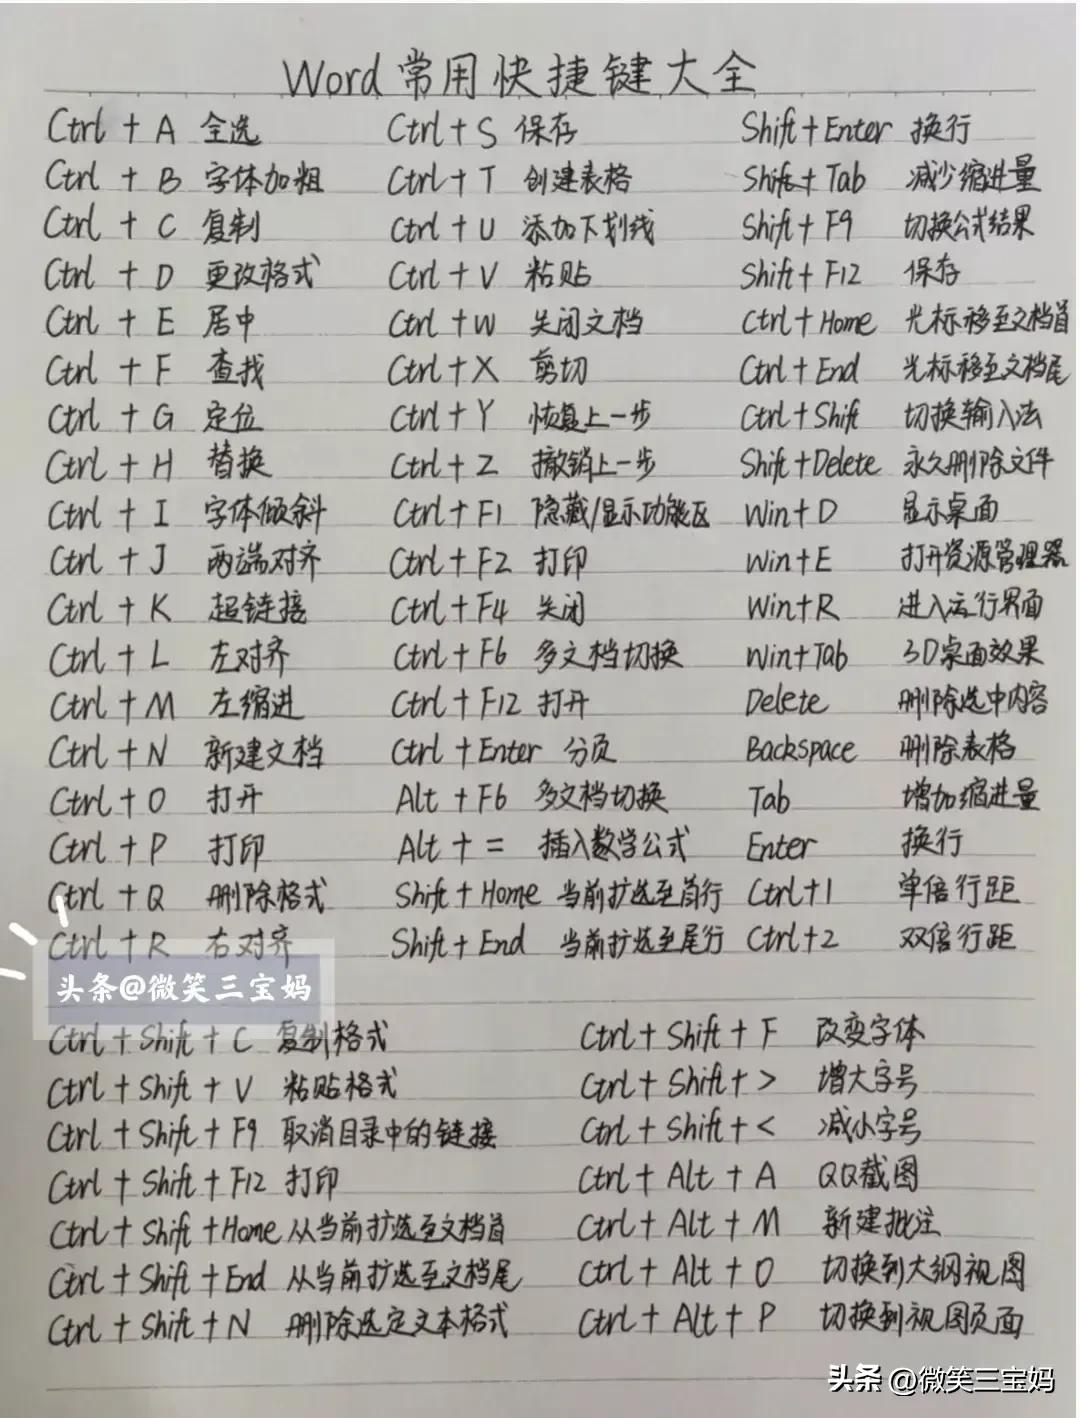 Word常用快捷键大全
Ctrl + A 全选
Ctrl + B 字体加粗
Ctrl + C 复制
Ctrl + D 更改格式
Ctrl + E 居中
Ctrl + F 查找
Ctrl + G 定位
Ctrl + H 替换
Ctrl + I 字体倾斜
Ctrl + J 两端对齐
Ctrl + K 超链接
Ctrl + L 左对齐
Ctrl + M 左缩进
Ctrl + N 新建文档
Ctrl + O 打开
Ctrl + P 打印
Ctrl + Q 删除格式
Ctrl + R 右对齐
Ctrl + S 保存
Ctrl + T 创建表格
Ctrl + U 添加下划线
Ctrl + V 粘贴
Ctrl + W 关闭文档
Ctrl + X 剪切
Ctrl + Y 恢复上一步
Ctrl + Z 撤销上一步
Ctrl + F1 隐藏/显示功能区
Ctrl + F2 打印
Ctrl + F4 关闭
Ctrl + F6 多文档切换
Ctrl + F12 打开
Ctrl + Enter 分页
Alt + F6 多文档切换
Alt + = 插入数学公式
Shift + Home 当前扩选至首行
Shift + End 当前扩选至尾行
Shift + Enter 换行
Shift + Tab 减少缩进量
Shift + F9 切换公式结果
Shift + F12 保存
Ctrl + Home 光标移至文档首
Ctrl + End 光标移至文档尾
Ctrl + Shift 切换输入法
Shift + Delete 永久删除文件
Win + D 显示桌面
Win + E 打开资源管理器
Win + R 进入运行界面
Win + Tab 3D桌面效果
Delete 删除选中内容
Backspace 删除表格
Tab 增加缩进量
Enter 换行
Ctrl + 1 单倍行距
Ctrl + 2 双倍行距
头条@微笑三宝妈
Ctrl + Shift + C 复制格式
Ctrl + Shift + V 粘贴格式
Ctrl + Shift + F9 取消目录中的链接
Ctrl + Shift + F12 打印
Ctrl + Shift + Home 从当前扩选至文档首
Ctrl + Shift + End 从当前扩选至文档尾
Ctrl + Shift + N 删除选定文本格式
Ctrl + Shift + F 改变字体
Ctrl + Shift + > 增大字号
Ctrl + Shift + < 减小字号
Ctrl + Alt + A QQ截图
Ctrl + Alt + M 新建批注
Ctrl + Alt + O 切换到大纲视图
Ctrl + Alt + P 切换到视图页面
头条 @微笑三宝妈